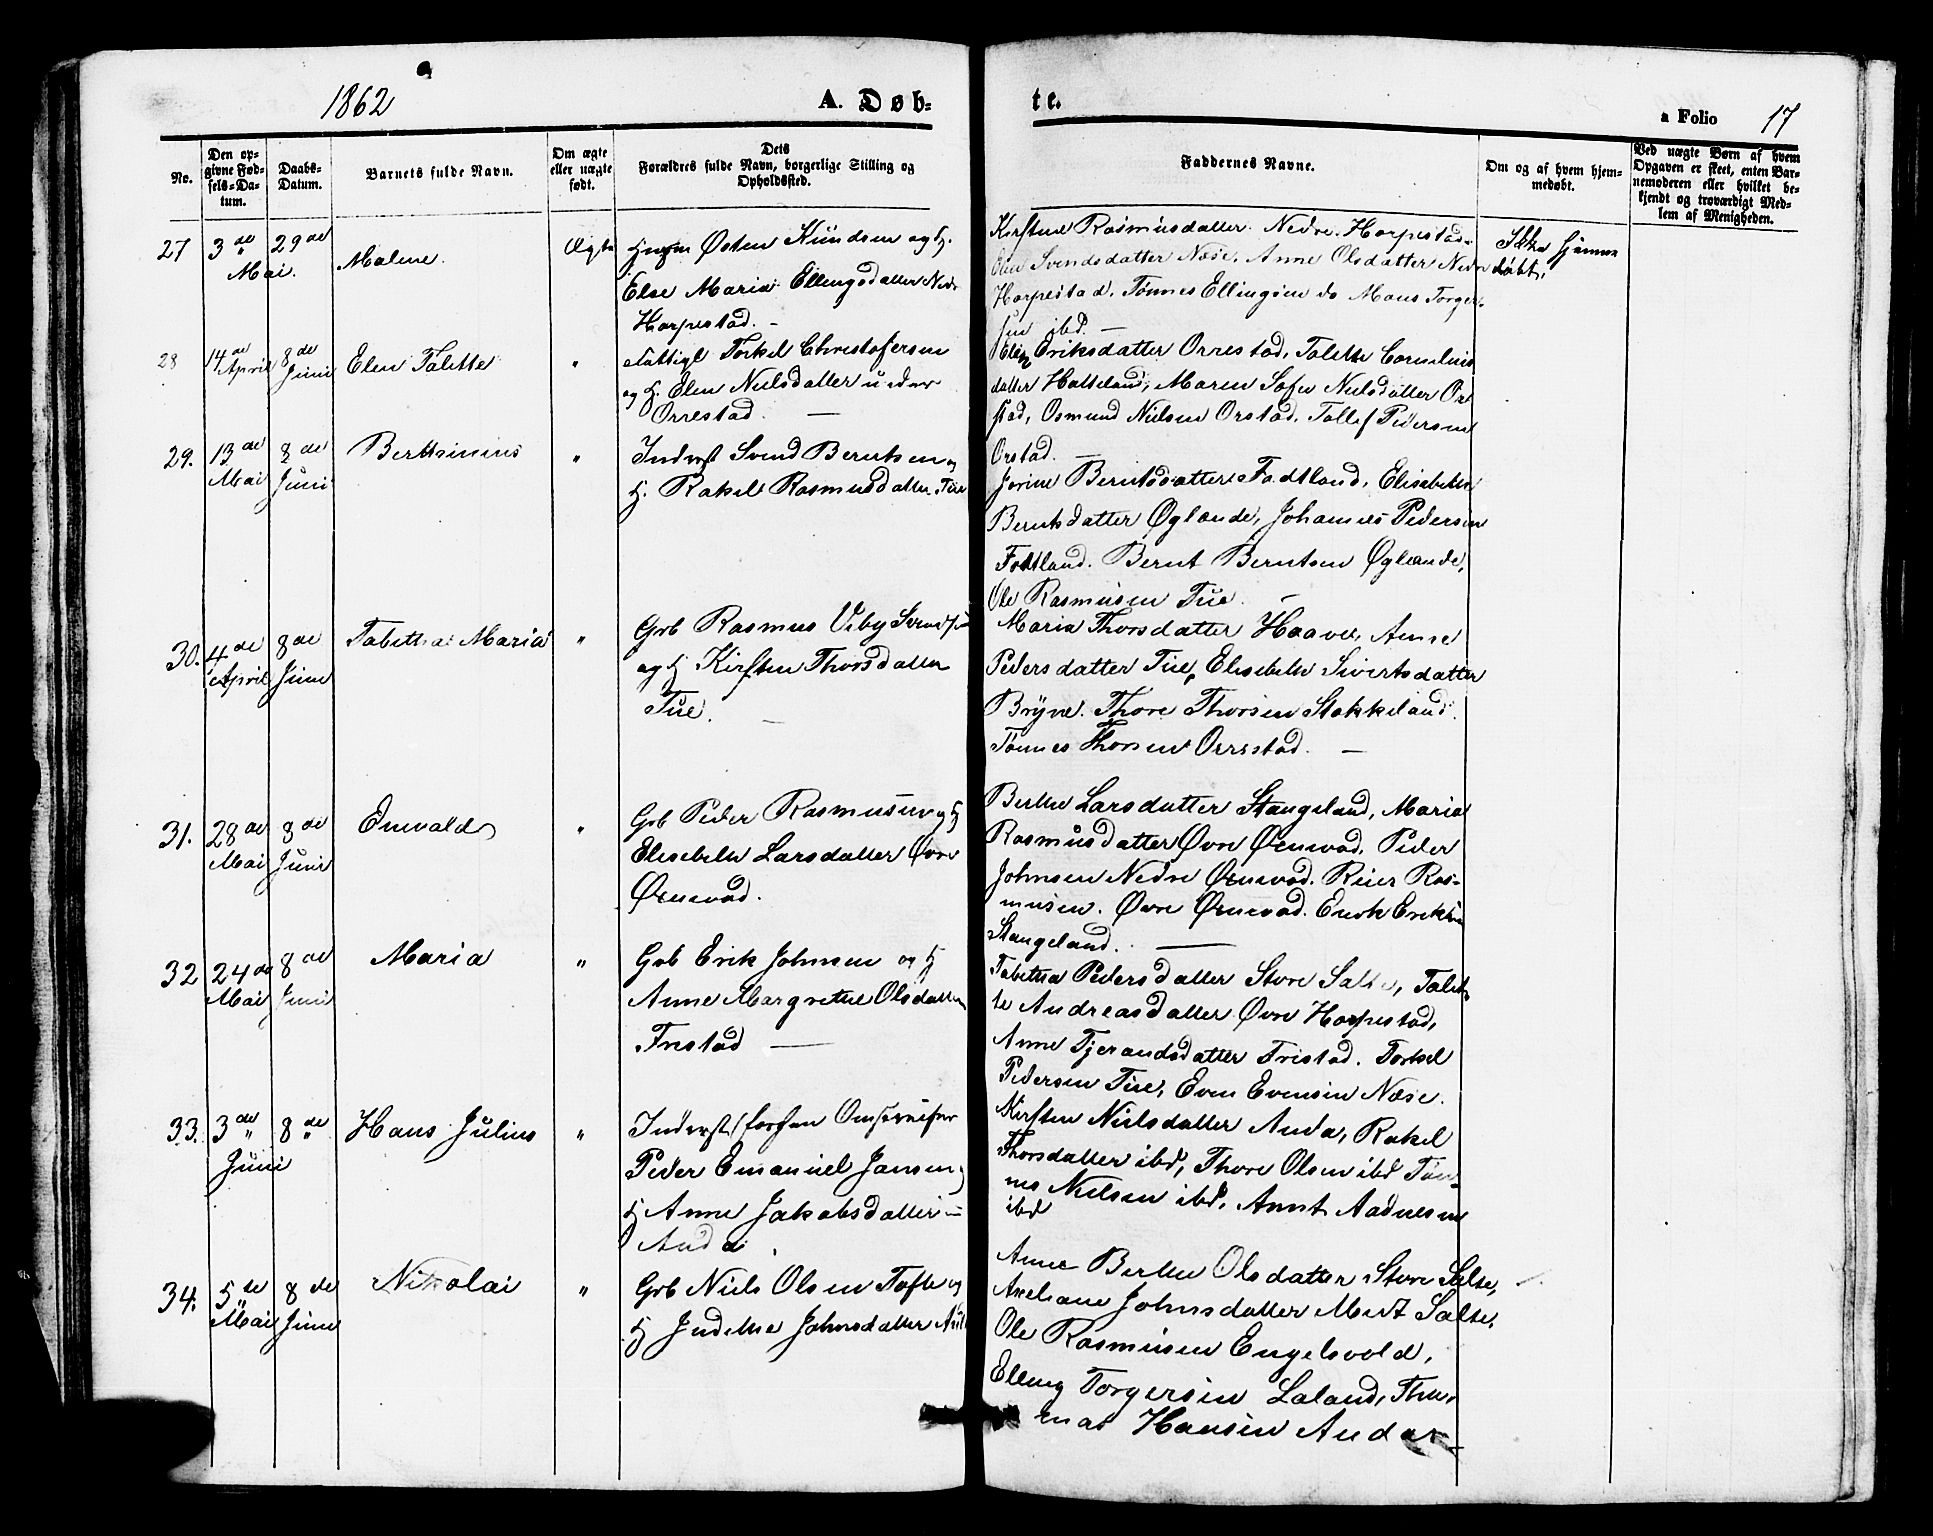 1862
A. Døb-
te.
a Folio 17
No.
Den op-
givne Fød-
sels-Da-
tum.
Daabs-
Datum.
Barnets fulde Navn.
Om ægte
eller uægte
født.
Dets
Forældres fulde Navn, borgerlige Stilling og
Opholdssted.
Faddernes Navne.
Om og af hvem hjem-
medøbt.
Ved uægte Børn af hvem
Opgaven er skeet, enten Bar-
nemoderen eller hvilket be-
kjendt og troværdigt Med-
lem af Menigheden.
27 3de Mai. 29de Malene. Ægte
Østen Knudsen og H.
Else Maria Ellingsdatter Nedr
Harpestad. —
Kirstine Rasmusdatter Nedre Harpestad.
Svendsdatter Næse. Anne Olsdatter Nedr
Harpestad. Tønnes Ellingsen do Mons Torger-
sen ibd. —
Ikke hjemme
døbt.
28 14de April 8de Juni Elen Talette "
Torkel Christofersen
og H. Elen Nielsdatter
Orrestad —
Eriksdatter Orrestad, Talette Cornelius
datter Hatteland, Maren Sofie Nielsdatter Or
stad, Osmund Nielsen Orstad. Tollef Pedersen
Orstad. —
29. 13de Mai 8de Juni Berthinius "
Inderst Svend Berntsen og
H. Rakel Rasmusdatter Tue
Jorine Berntsdatter Fodtland, Elisabeth
Berntsdatter Øglænde, Johannes Pedersen
Fodtland. Bernt Berntsen Øglænde,
Ole Rasmussen Tue. —
30. 4de April 8de Juni Tabitha Maria "
Grb Rasmus Veby Svendsen
og H Kirsten Thorsdatter
Tue. —
Maria Thorsdatter Haave, Anne
Pedersdatter Tue, Elisabeth Sivertsdatter
Bryne. Thore Thorsen Stokkeland.
Tønnes Thorsen Orrestad. —
31. 28de Mai 8de Juni Enevald "
Grb Peder Rasmusen og H
Elisebeth Larsdatter Øvre
Ørnevad.
Berthe Larsdatter Stangeland, Maria
Rasmusdatter Øvre Ørnevad, Peder
Johnsen Nedre Ørnevad. Reier Ras-
musen. Øvre Ørnevad. Enok Eriksen
Stangeland. —
32 24de Mai 8de Juni Maria "
Grb Erik Johnsen og H
Anne Margrethe Olsdatter
Fristad —
Tabitha Pedersdatter Store Salte, Talet-
te Andreasdatter Øvre Harpestad,
Anne Tjerandsdatter Fristad. Torkel
Pedersen Tue, Even Evensen Næse.
33. 3de Juni 8de " Hans Julius "
Inderst
Peder Emanuel Jansen
H Anne Jakobsdatter —
Anda.
Kirsten Nielsdatter Anda, Rakel
Thorsdatter ibd, Thore Olsen ibd Tøn-
nes Nielsen ibd, Aadnesen
ibd
34. 5te Mai 8de Juni Nikolai "
Grb Niels Olsen Tofte og
H Judithe Johnsdatter
Anne Berthe Olsdatter Store Salte,
Axeliane Johnsdatter Salte.
Ole Rasmusen Engelsvold,
Elling Torgersen Laland, Tho-
mas Hansen Anda. —